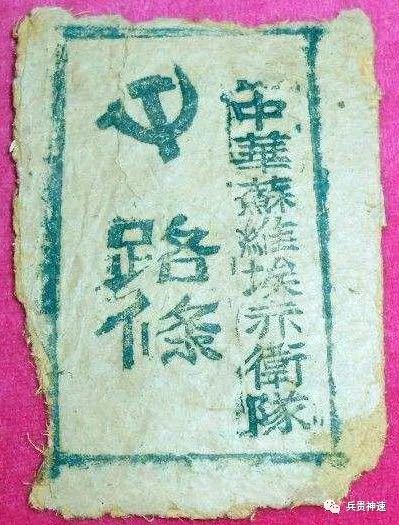 中華蘇維埃赤衛隊
路條
兵贵神速